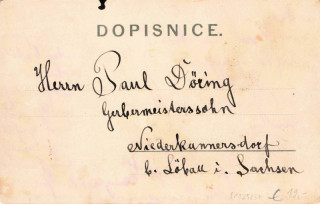 DOPISNICE.
Herrn Paul Döring
Gerbermeisterssohn
Niederkunnersdorf
b. Löbau i. Sachsen